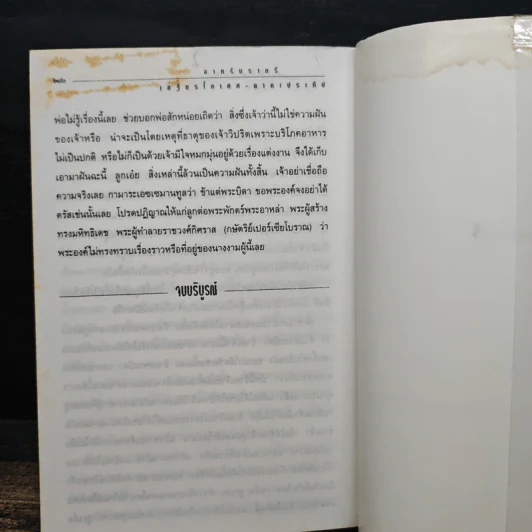 อาหรับราตรี
เสฐียรโกเศศ-นาคะประทีป
พ่อไม่รู้เรื่องนี้เลย ช่วยบอกพ่อสักหน่อยเถิดว่า สิ่งซึ่งเจ้าว่านี้ไม่ใช่ความฝัน
ของเจ้าหรือ น่าจะเป็นโดยเหตุที่ธาตุของเจ้าวิปริตเพราะบริโภคอาหาร
ไม่เป็นปกติ หรือไม่ก็เป็นด้วยเจ้ามีใจหมกมุ่นอยู่ด้วยเรื่องแต่งงาน จึงได้เก็บ
เอามาฝันฉะนี้ ลูกเอ๋ย สิ่งเหล่านี้ล้วนเป็นความฝันทั้งสิ้น เจ้าอย่าเชื่อถือ
ความจริงเลย กามาระเอซเซมานทูลว่า ข้าแต่พระบิดา ขอพระองค์จงอย่าได้
ตรัสเช่นนั้นเลย โปรดปฏิญาณให้แก่ลูกต่อพระพักตร์พระอาหล่า พระผู้สร้าง
ทรงมหิทธิเดช พระผู้ทำลายราชวงศ์กิศราส (กษัตริย์เปอร์เซียโบราณ) ว่า
พระองค์ไม่ทรงทราบเรื่องราวหรือที่อยู่ของนางงามผู้นี้เลย
จบบริบูรณ์